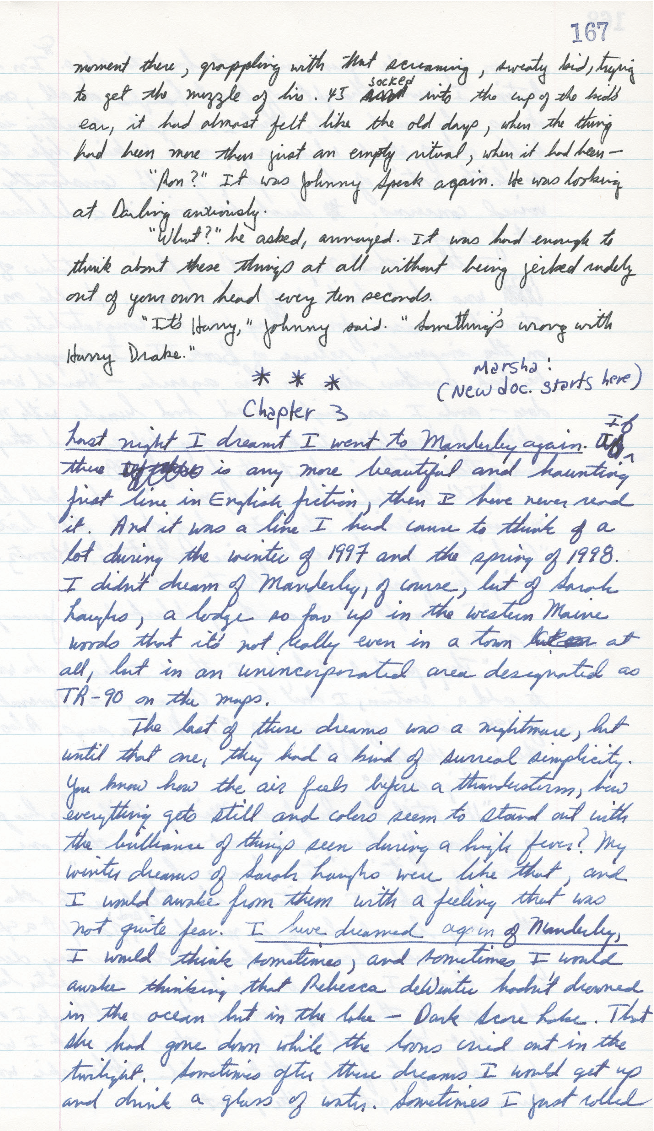 167
moment there, grappling with that screaming, sweaty kid, trying
to get the muzzle of his .45 socked into the cup of the kid's
ear, it had almost felt like the old days, when the thing
had been more than just an empty ritual, when it had been—
"Ron?" It was Johnny Speck again. He was looking
at Darling anxiously.
"What?" he asked, annoyed. It was hard enough to
think about these things at all without being jerked rudely
out of your own head every ten seconds.
"It's Harry," Johnny said. "Something's wrong with
Harry Drake."
Marsha:
* * * (New doc. starts here)
Chapter 3
Last night I dreamt I went to Manderley again. If
there is any more beautiful and haunting
first line in English fiction, then I have never read
it. And it was a line I had cause to think of a
lot during the winter of 1997 and the spring of 1998.
I didn't dream of Manderley, of course, but of Sarah
Laughs, a lodge so far up in the western Maine
woods that it's not really even in a town at
all, but in an unincorporated area designated as
TR-90 on the maps.
The last of these dreams was a nightmare, but
until that one, they had a kind of surreal simplicity.
You know how the air feels before a thunderstorm, how
everything gets still and colors seem to stand out with
the brilliance of things seen during a high fever? My
winter dreams of Sarah Laughs were like that, and
I would awake from them with a feeling that was
not quite fear. I have dreamed again of Manderley,
I would think sometimes, and sometimes I would
awake thinking that Rebecca deWinter hadn't drowned
in the ocean but in the lake — Dark Score Lake. That
she had gone down while the loons cried out in the
twilight. Sometimes after these dreams I would get up
and drink a glass of water. Sometimes I just rolled